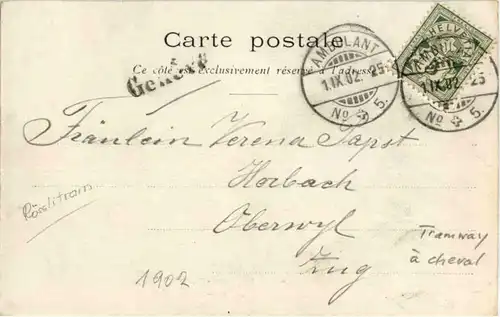 Carte postale
Ce côté est exclusivement réservé à l'adresse.
Genève
AMBULANT
1.IX.02. 25
No 5.
HELVE
AMBULANT
1.IX.02. 25
No 5.
Fräulein Verena Papst
Horbach
Oberwyl
Zug
Rösslitram
Tramway
à cheval
1902